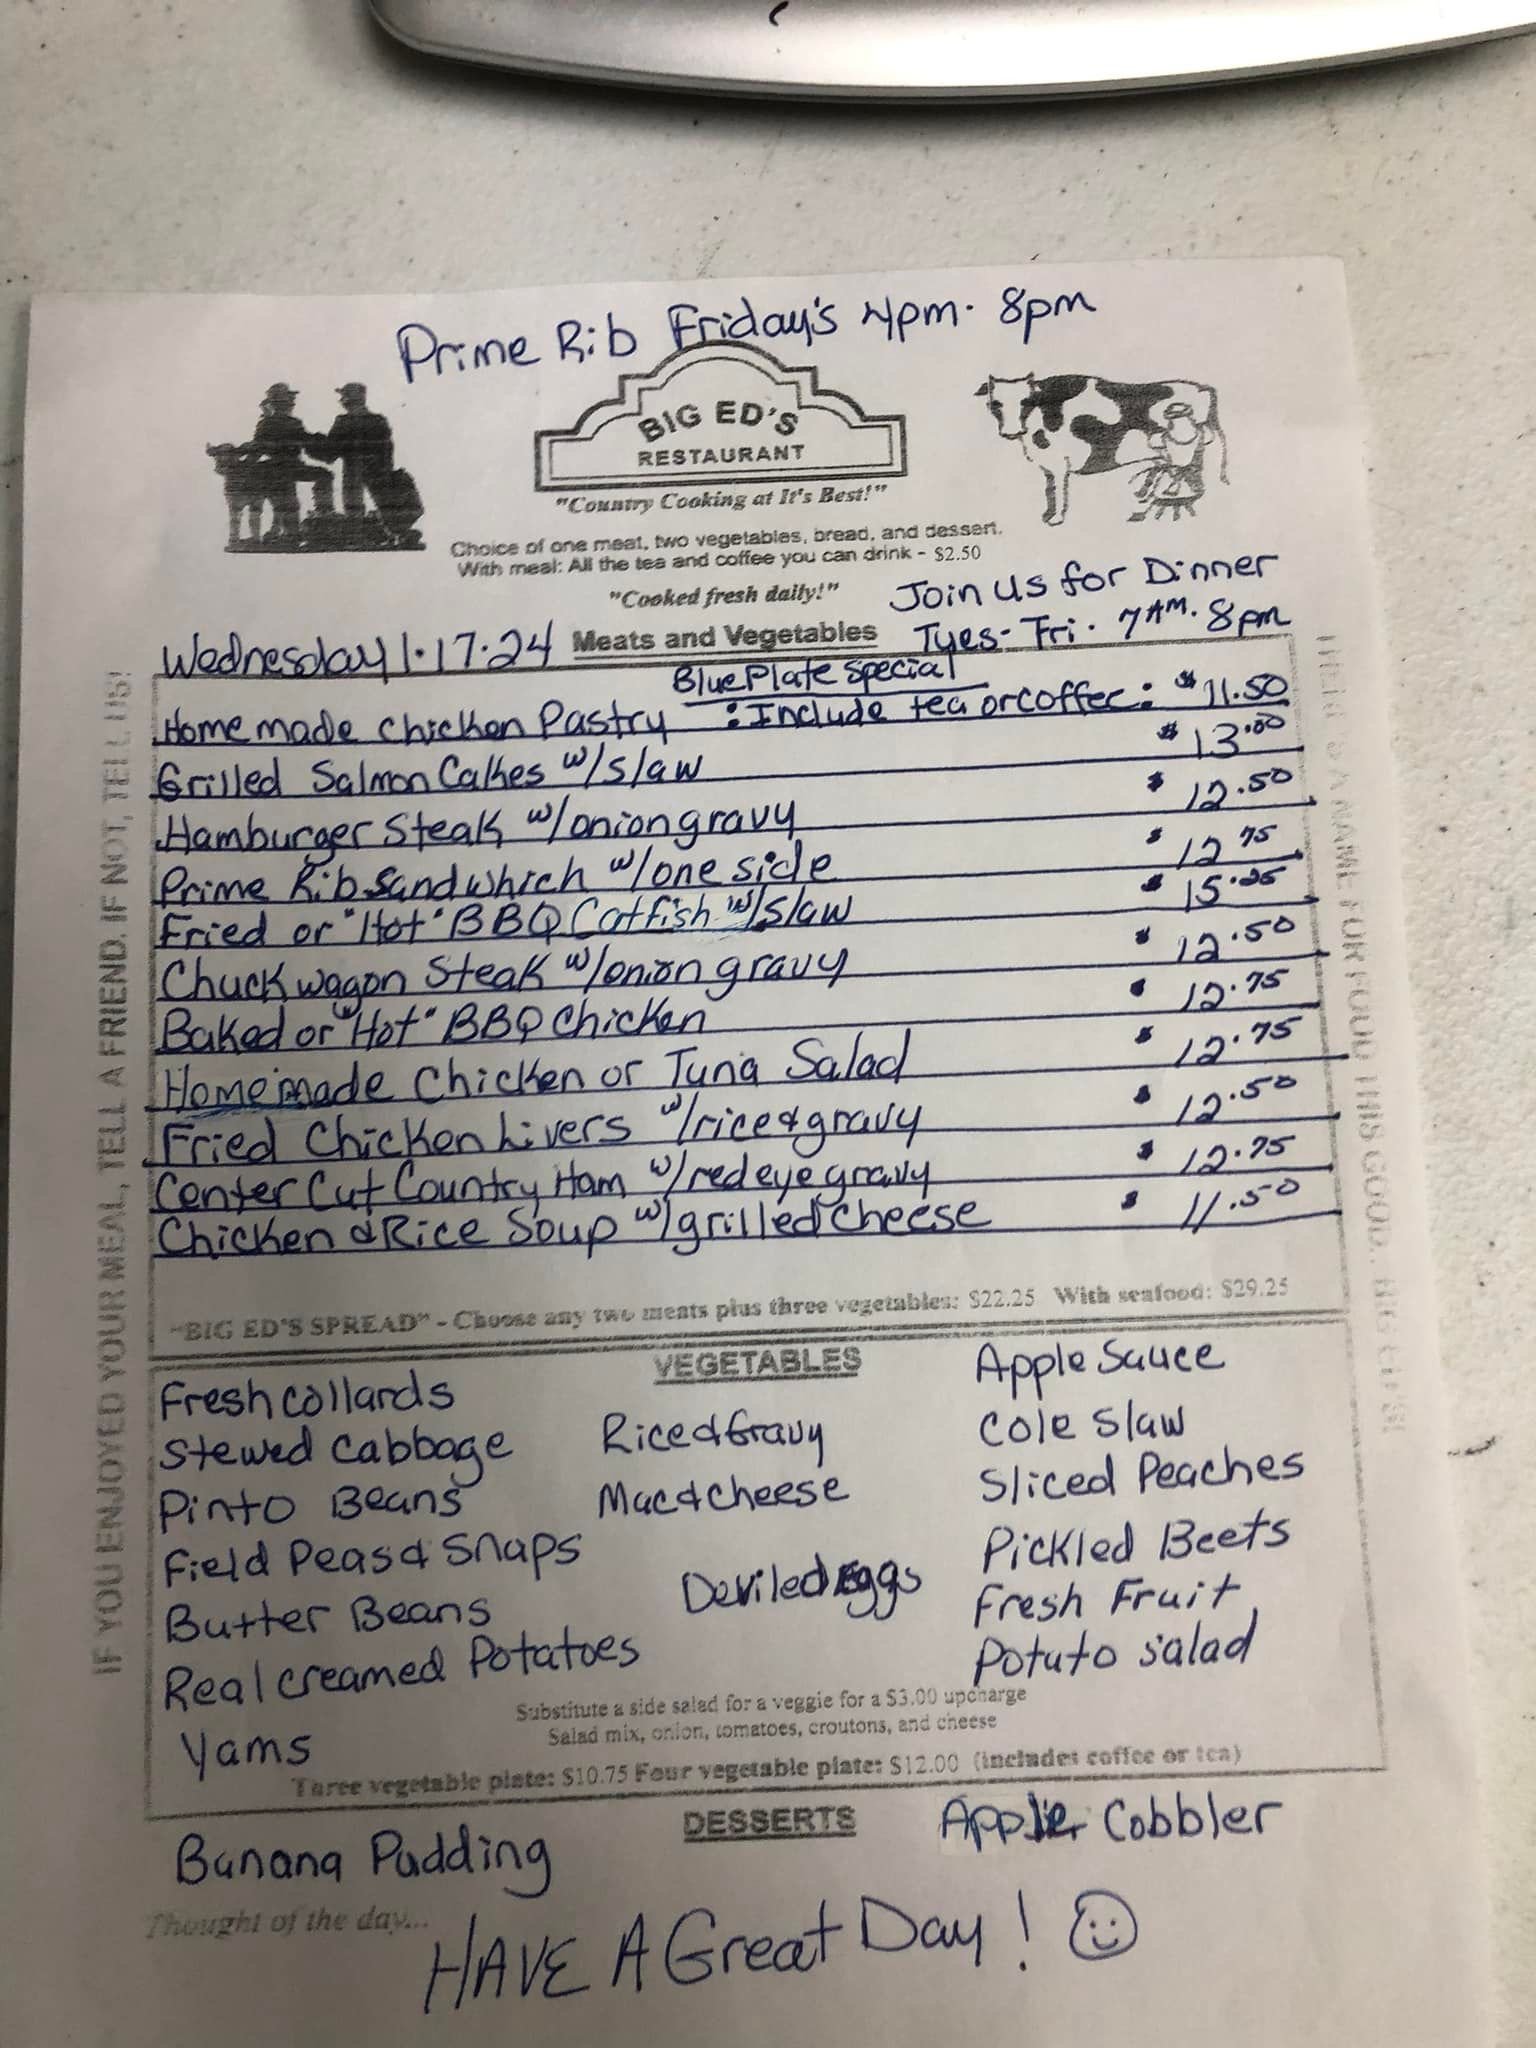 Prime Rib Friday's 4pm. 8pm
BIG ED'S
RESTAURANT
"Country Cooking at It's Best!"
Choice of one meat, two vegetables, bread, and dessert.
With meal: All the tea and coffee you can drink - $2.50
"Cooked fresh daily!"
Join us for Dinner
Tues- Fri. 7AM. 8pm
Wednesday 1.17.24 Meats and Vegetables
Blue Plate Special
Homemade Chicken Pastry : Include tea or coffee: $11.50
Grilled Salmon Cakes w/slaw $13.00
Hamburger Steak w/onion gravy $12.50
Prime Rib Sandwhich w/one side $12.75
Fried or "Hot" BBQ Catfish w/slaw $15.25
Chuck wagon Steak w/onion gravy $12.50
Baked or "Hot" BBQ Chicken $12.75
Homemade Chicken or Tuna Salad $12.75
Fried Chicken Livers w/rice & gravy $12.50
Center Cut Country Ham w/red eye gravy $12.75
Chicken & Rice Soup w/grilled cheese $11.50
"BIG ED'S SPREAD" - Choose any two meats plus three vegetables: $22.25 With seafood: $29.25
VEGETABLES
Fresh collards
Stewed Cabbage
Pinto Beans
Field Peas & Snaps
Butter Beans
Real creamed Potatoes
Yams
Rice & Gravy
Mac & Cheese
Deviled Eggs
Apple Sauce
Cole Slaw
Sliced Peaches
Pickled Beets
Fresh Fruit
Potato Salad
Substitute a side salad for a veggie for a $3.00 upcharge
Salad mix, onion, tomatoes, croutons, and cheese
Three vegetable plate: $10.75 Four vegetable plate: $12.00 (includes coffee or tea)
DESSERTS
Banana Pudding
Apple Cobbler
Thought of the day...
HAVE A Great Day!
IF YOU ENJOYED YOUR MEAL, TELL A FRIEND. IF NOT, TELL US!
THERE'S A NAME FOR FOOD THIS GOOD... BIG ED'S!